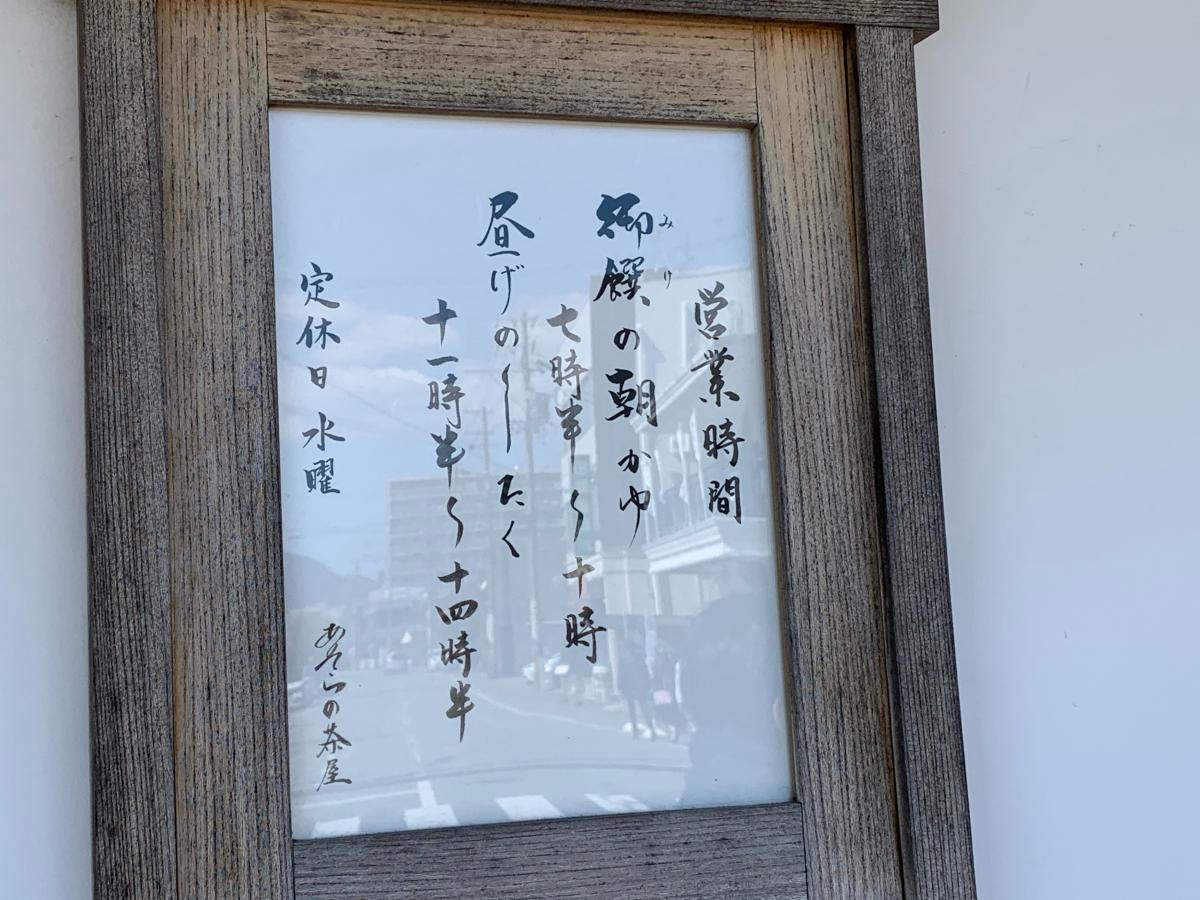 営業時間
みけ
御饌の朝かゆ
七時半〜十時
昼げのしたく
十一時半〜十四時半
定休日 水曜
あそらの茶屋